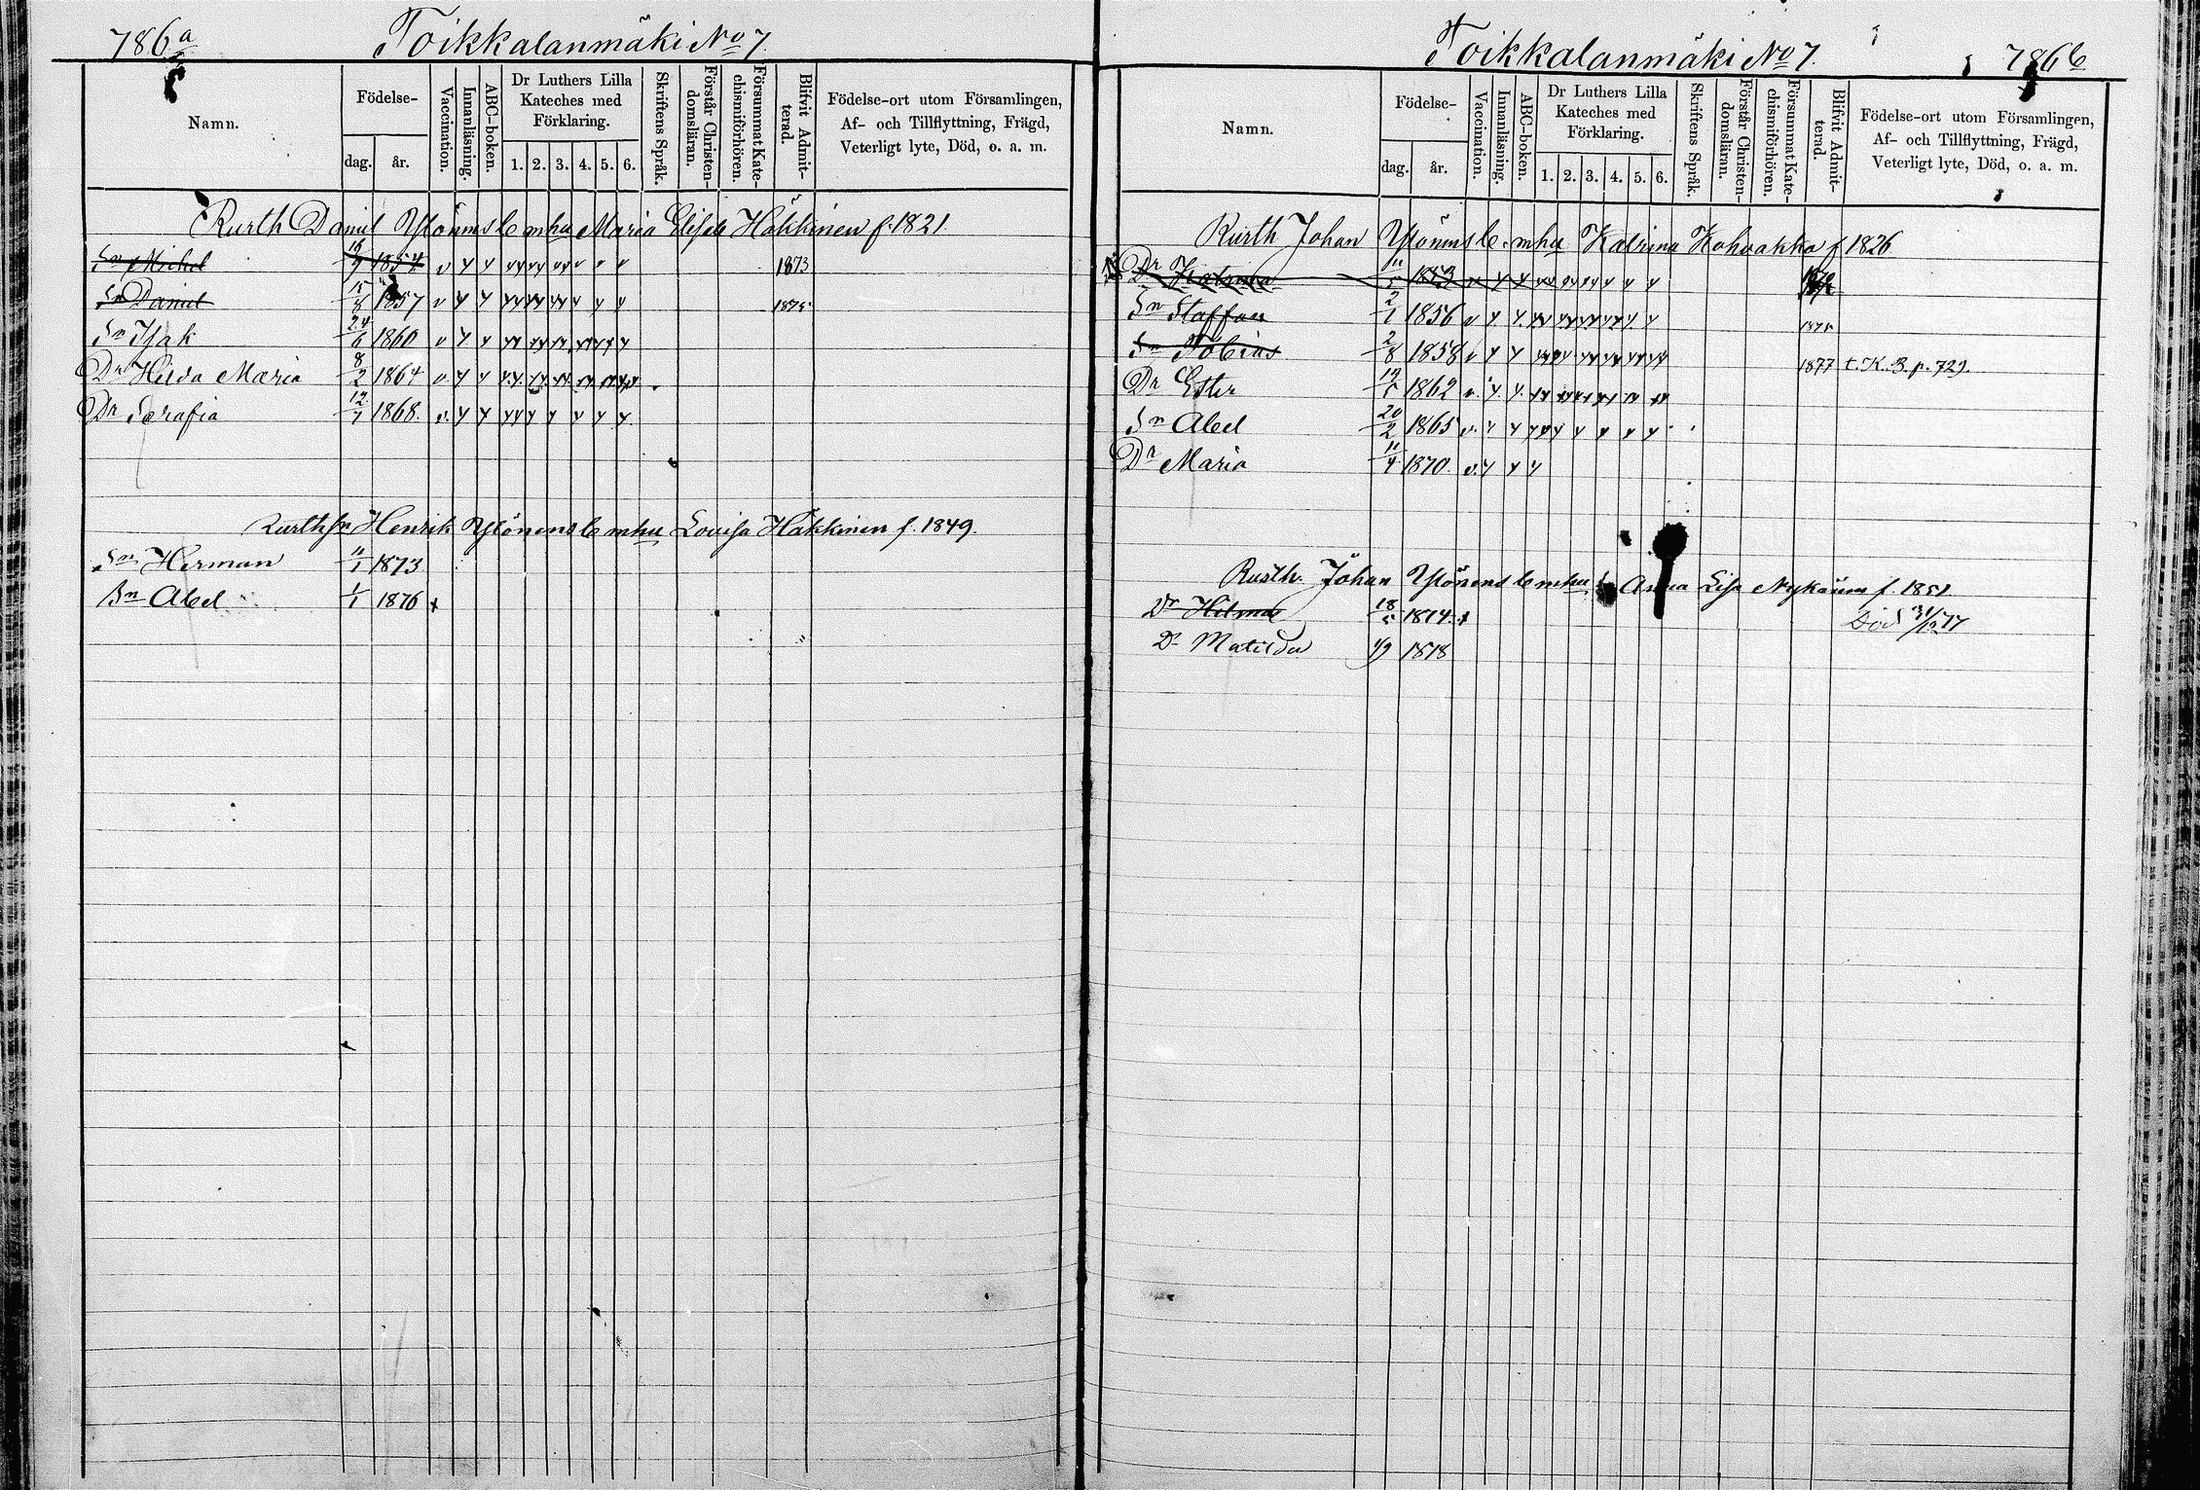 786a
Toikkalanmäki No 7.
Namn.
Födelse-
dag. år.
Vaccination.
Innanläsning.
ABC-boken.
Dr Luthers Lilla
Kateches med
Förklaring.
1. 2. 3. 4. 5. 6.
Skriftens Språk.
Förstår Christen-
domsläran.
Försummat Kate-
chismiförhören.
Blifvit Admit-
terad.
Födelse-ort utom Församlingen,
Af- och Tillflyttning, Frägd,
Veterligt lyte, Död, o. a. m.
Rusth Daniel Ylönens b m hu Maria Häkkinen f. 1821
Sn Michel 1854 v 1873
Sn Daniel 15/8 1857 v 1875
Sn Isak 24/6 1860 v
Dr Hilda Maria 8/2 1864 v
Dr Serafia 12/7 1868 v
Henrik Ylönens b m hu Lovisa Häkkinen f. 1849.
Sn Herman 11/1 1873
Sn Abel 1/1 1876
Toikkalanmäki No 7.
786b
Namn.
Födelse-
dag. år.
Vaccination.
Innanläsning.
ABC-boken.
Dr Luthers Lilla
Kateches med
Förklaring.
1. 2. 3. 4. 5. 6.
Skriftens Språk.
Förstår Christen-
domsläran.
Försummat Kate-
chismiförhören.
Blifvit Admit-
terad.
Födelse-ort utom Församlingen,
Af- och Tillflyttning, Frägd,
Veterligt lyte, Död, o. a. m.
Rusth Johan Ylönens b. m hu Katrina Kohvakka f 1826
Dr Katrina 1853
Sn Staffan 2/1 1856 v
Sn Tobias 2/8 1858 v 1877 t. K. B. p. 729.
Dr Ester 1862 v
Sn Abel 20/2 1865 v
Dr Maria 11/4 1870 v
Rusth. Johan Ylönens b m hu Anna Lisa f. 1851
Dr Hilma 18/5 1874 Död 31/12 77
Dr Matilda 1/9 1878